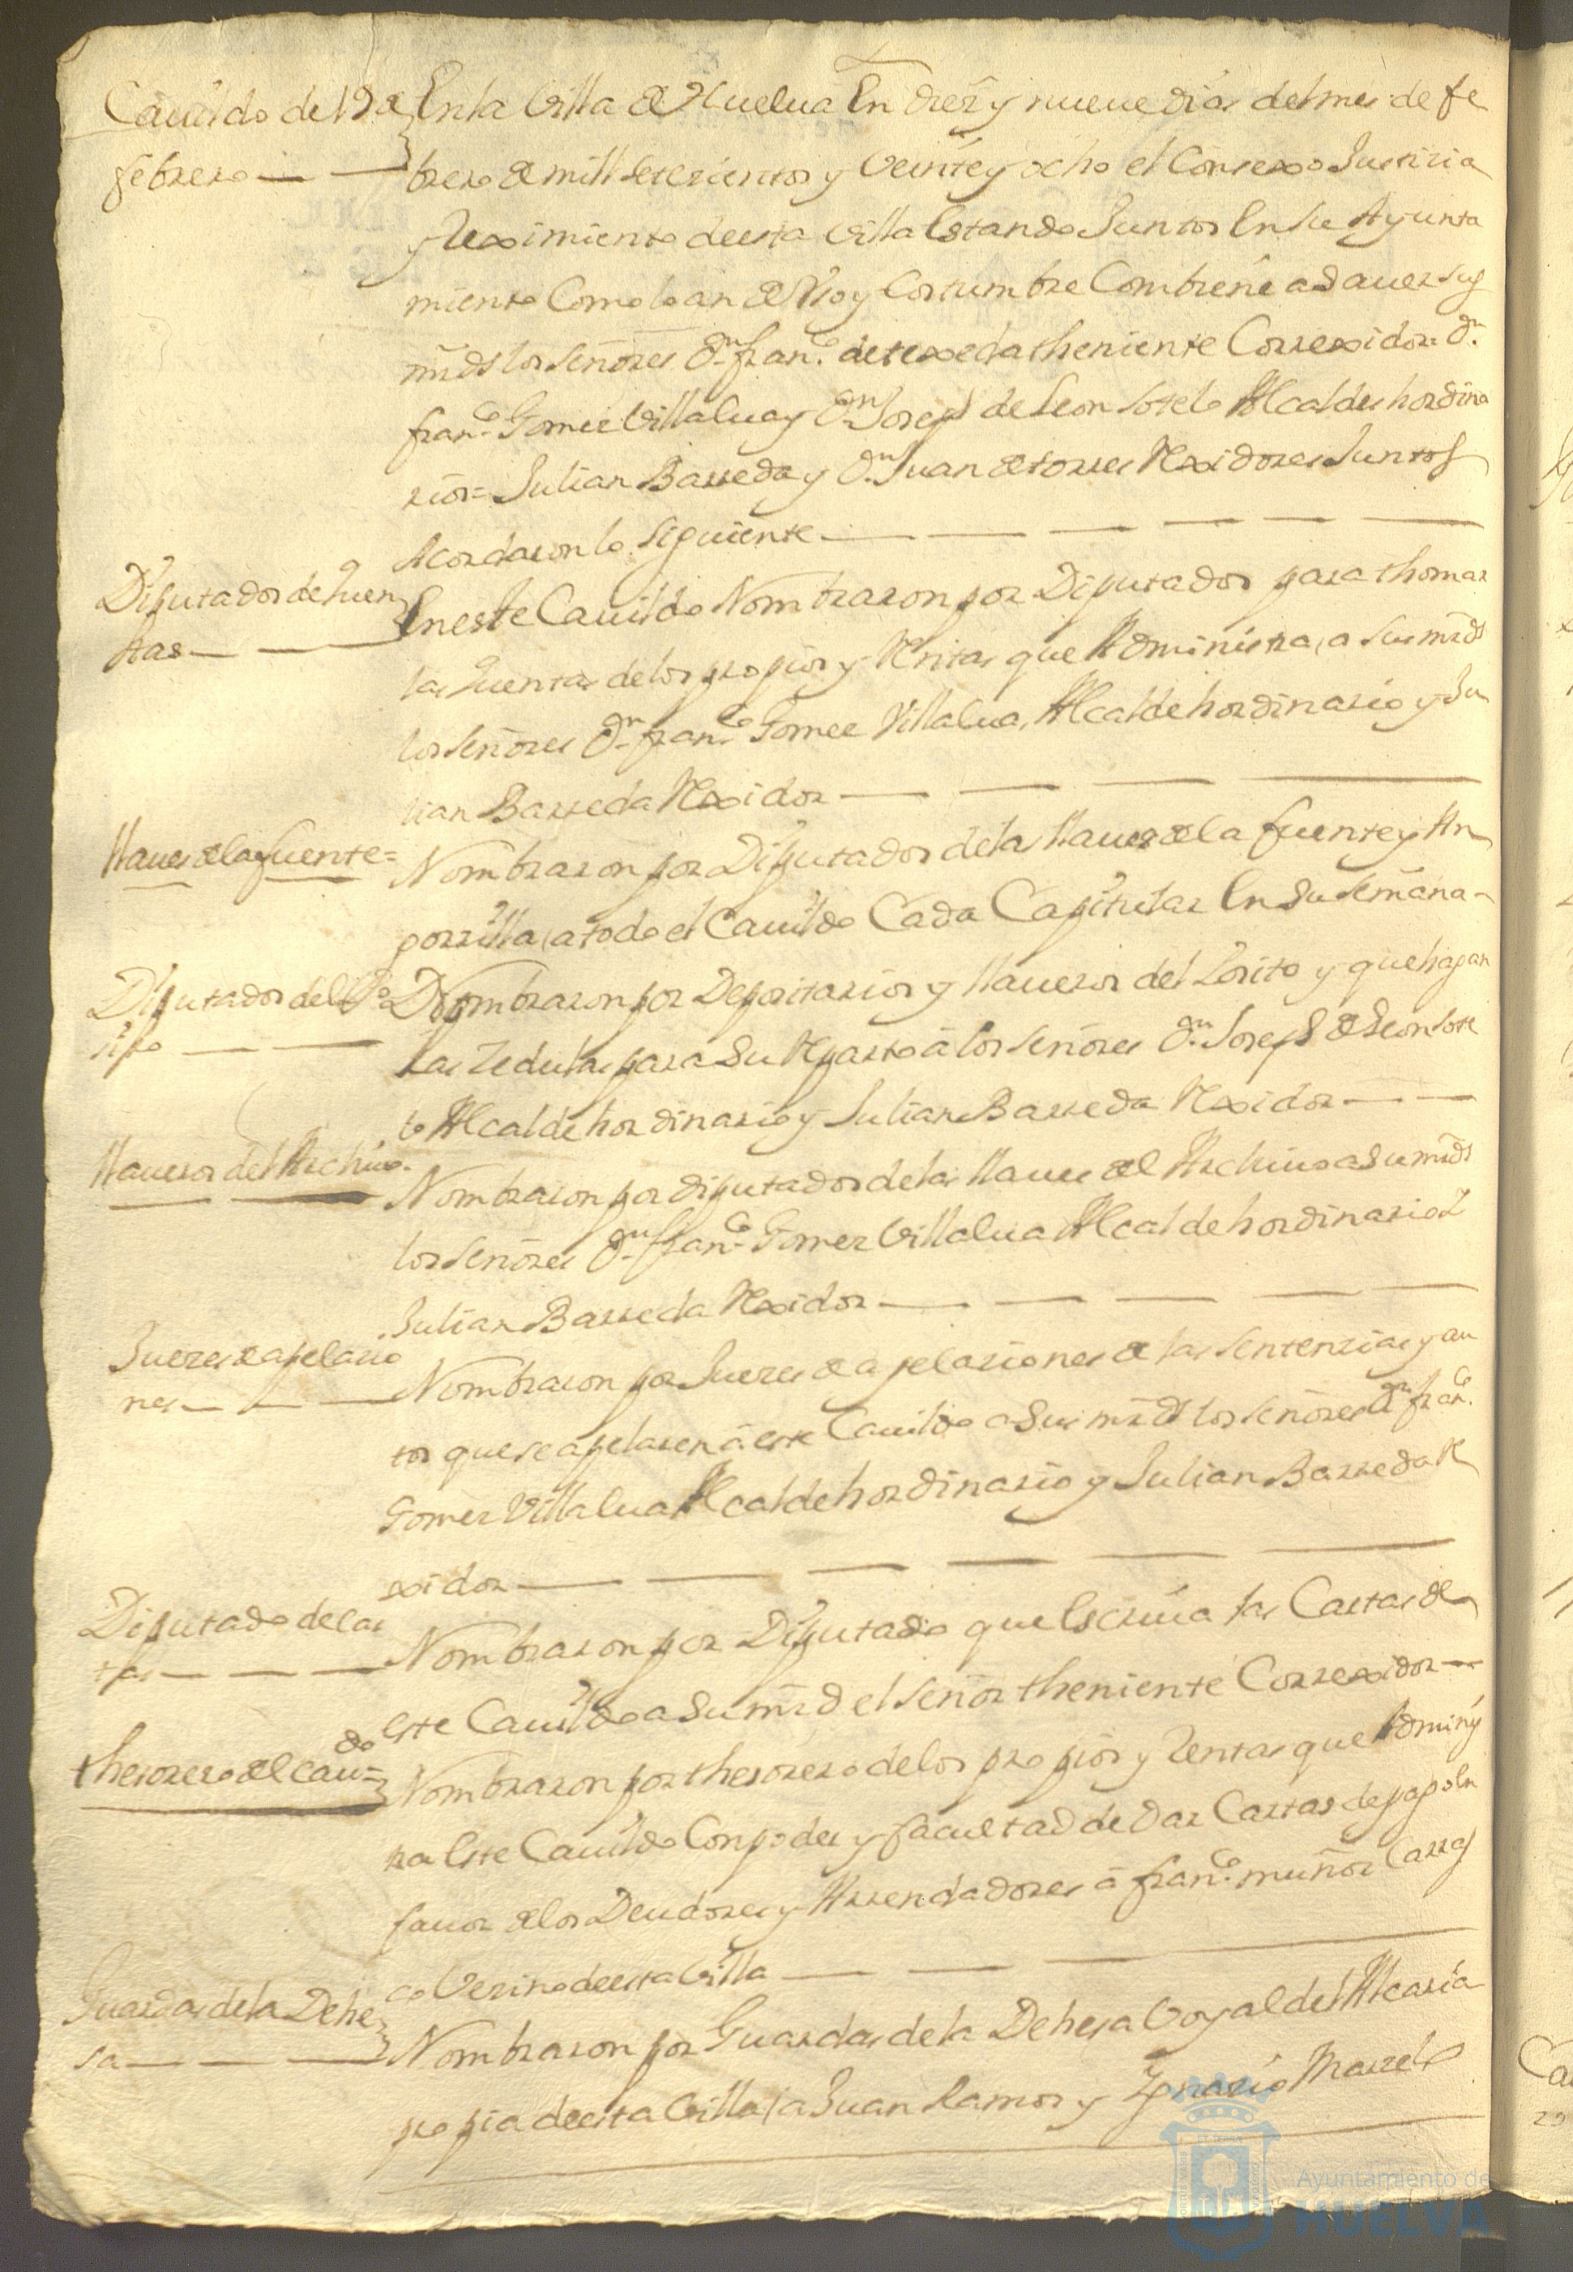 Cauildo de 19 de
febrero
En la Villa de Huelua En diez y nueue dias del mes de fe
brero de mill setecientos y Veinte y ocho el Conсexo Justicia
y Reximiento desta Villa Estando Juntos En su Ayunta
miento Como lo an de Vso y Costumbre Combiene a sauer sus
mrds los señores Dn franco de texeda theniente Correxidor = Dn
franco Gomez Villalua y Dn Joseph de Leon Sotelo Alcaldes hordina
rios = Julian Barreda y Dn Juan de torres Rexidores Juntos
Acordaron lo siguiente
Diputados de quen
tas
En este Cauildo Nombraron por Diputados para thomar
las quentas de los propios y Rentas que Administra, a sus mrds
los señores Dn franco Gomez Villalua, Alcalde hordinario y Ju
lian Barreda Rexidor
llaues de la fuente =
Nombraron por Diputados de las llaues de la fuente y An
gorrilla, a todo el Cauildo Cada Capitular En su semana
Diputados del Po
sito
Nombraron por Depositarios y llaueros del Posito y que hagan
las Zedulas para su Reparto â los señores Dn Joseph de Leon Sote
lo Alcalde hordinario y Julian Barreda Rexidor
llaueros del Archiuo
Nombraron por diputados de las llaues del Archiuo a su mrds
los señores Dn franco Gomez Villalua Alcalde hordinario Y
Julian Barreda Rexidor
Juezes de apelacio
nes
Nombraron por Juezes de apelaziones de las sentenzias y au
tos que se apelaren â este Cauildo a sus mrds los señores Dn franco
Gomez Villalua Alcalde hordinario y Julian Barreda Re
xidor
Diputado de Car
tas
Nombraron por Diputado que Escriua las Cartas de
Este Cauildo a su mrd el señor theniente Correxidor
thesorero del caui
do
Nombraron por thesorero de los propios y Rentas que Adminis
tra Este Cauildo Con poder y facultad de Dar Cartas de pago En
fauor de los Deudores y Arrendadores â franco muñoz Carras
co Vezino desta Villa
Guardas de la Dehe
sa
Nombraron por Guardas de la Dehesa boyal del Alcaria
propia desta Villa, a Juan Ramos y Ygnazio Marrelo
Ayuntamiento de
HUELVA